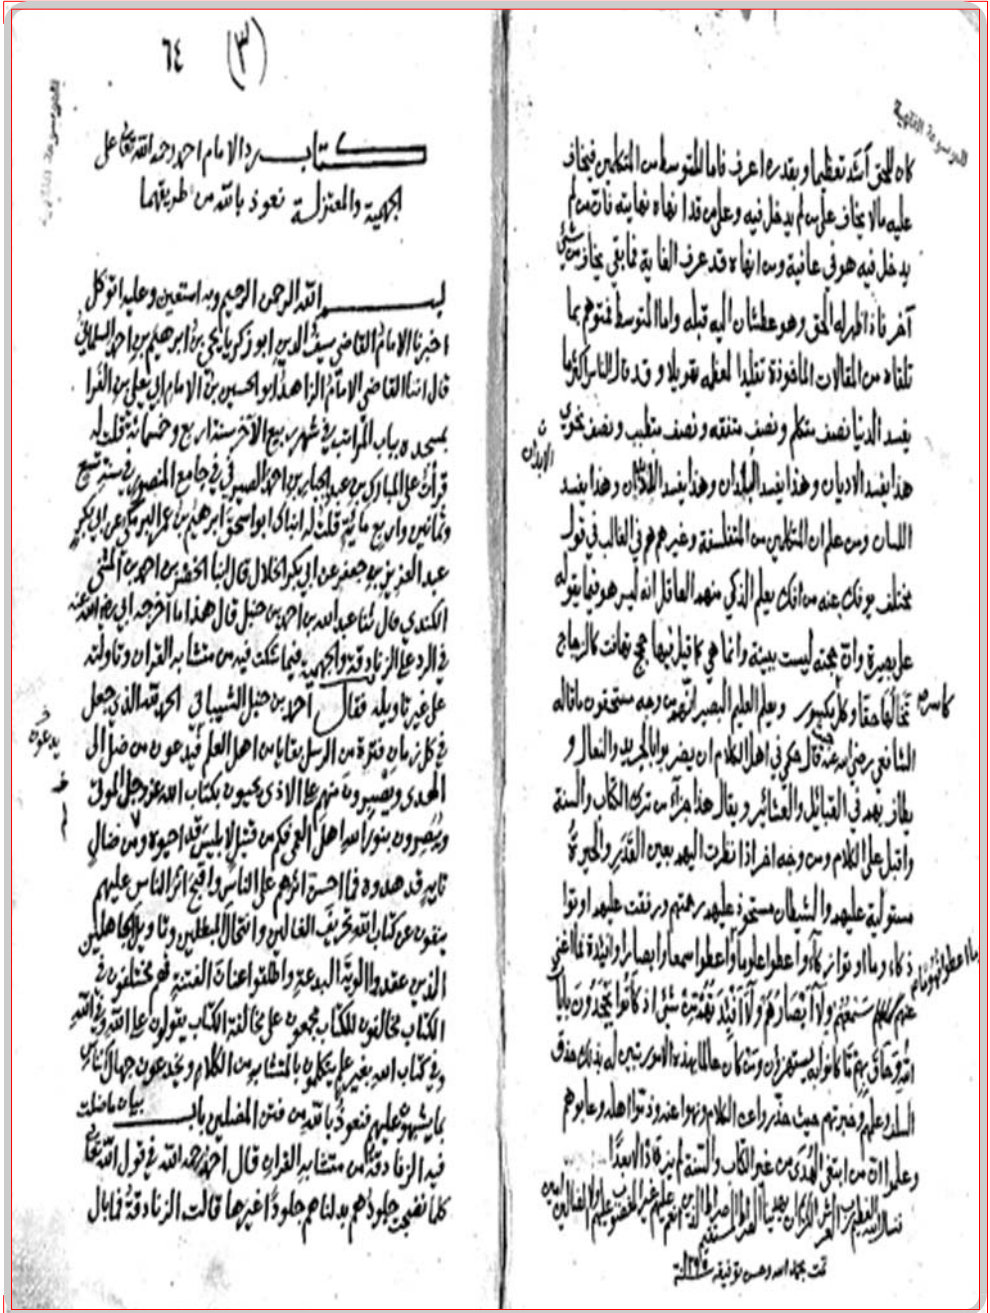 كان للحق أشد تعظيما وبقدره اعرف فاما المتوسط من المتكلمين فيخاف
عليه مالا يخاف على من لم يدخل فيه وعلى من قد انهاه نهايته فان من لم
يدخل فيه هو في عافية ومن انهاه قد عرف الغاية فما بقي يخاف من شئ
آخر فاذا ظهر له الحق وهو عطشان اليه قبله واما المتوسط فمتوهم بما
تلقاه من المقالات الماخوذة تقليدا لمعظمه وقد قال الناس اكثر ما
يفسد الدنيا نصف متكلم ونصف متفقه ونصف متطبب ونصف نحوي
هذا يفسد الاديان وهذا يفسد البلدان وهذا يفسد وهذا يفسد
الابدان
اللسان ومن علم ان المتكلمين من المتفلسفة وغيرهم هم في الغالب في قول
مختلف يوفك عنه من افك يعلم الذكي منهم العاقل انه ليس هو فيما يقوله
على بصيرة وان حجته ليست ببينة وانما هي كما قيل فيها حجج تهافت كالزجاج
تخالها حقا وكل مكسور ويعلم العليم البصير انهم من وجه مستحقون ما قاله
كاسر
الشافعي رضي الله عنه قال حكمي في اهل الكلام ان يضربوا بالجريد والنعال و
يطاف بهم في القبائل والعشائر ويقال هذا جزآء من ترك الكتاب والسنة
واقبل على الكلام ومن وجه اخر اذا نظرت اليهم بعين القدر والحيرة
مستولية عليهم والشيطان مستحوذ عليهم رحمتهم ورفقت عليهم اوتوا
ذكاء وما اوتوا زكآء واعطوا علوما واعطوا سمعا وابصارا وافئدة فما اغنى
عنهم سمعهم ولا أبصارهم ولا أفئدتهم من شئ اذ كانوا يجحدون بايات
الله وحاق بهم ما كانوا به يستهزؤن ومن كان عالما بهذه الامور تبين له بذلك حذق
السلف وعلمهم وخبرتهم حيث حذروا عن الكلام ونهوا عنه وذموا اهله وعابوهم
وعلموا ان من ابتغى الهدى من غير الكتاب والسنة لم يزدد الا بعدا
فنسال الله العظيم رب العرش الكريم ان يهدينا الصراط المستقيم صراط الذين انعم عليهم غير المغضوب عليهم ولا الضالين امين
تمت بحمد الله وحسن توفيقه
(٣) ٦٤
كتاب رد الامام احمد رحمه الله تعالى على
الجهمية والمعتزلة نعوذ بالله من طريقهما
بسم الله الرحمن الرحيم وبه استعين وعليه اتوكل
اخبرنا الامام القاضي سيف الدين ابو زكريا يحيى بن ابرهيم بن احمد السلماني
قال انبا القاضي الامام الزاهد ابو الحسين بن الامام ابي يعلى بن الفرا
بمسجده بباب المراتب في شهر ربيع الآخر سنة اربع وخمسمائة قلت له
قرات على المبارك بن عبد الجبار بن احمد الصيرفي في جامع المنصور في سنة تسع
وثمانين واربع مائة قلت له انباك ابو اسحق ابرهيم بن عمر البرمكي عن ابي بكر
عبد العزيز بن جعفر عن ابي بكر الخلال قال انبا الخضر بن احمد بن المثنى
الكندي قال ثنا عبد الله بن احمد بن حنبل قال هذا ما اخرجه ابي رضي الله عنه
في الرد على الزنادقة والجهمية فيما شكت فيه من متشابه القران وتاولته
على غير تاويله فقال احمد بن حنبل الشيباني الحمد لله الذي جعل
في كل زمان فترة من الرسل بقايا من اهل العلم يدعون من ضل الى
يدعون
الهدى ويصبرون منهم على الاذى يحيون بكتاب الله عز وجل الموتى
ويبصرون بنور الله اهل العمى فكم من قتيل لابليس قد احيوه وكم من ضال
تايه قد هدوه فما احسن اثرهم على الناس واقبح اثر الناس عليهم
ينفون عن كتاب الله تحريف الغالين وانتحال المبطلين وتاويل الجاهلين
الذين عقدوا الوية البدعة واطلقوا عنان الفتنة فهم مختلفون في
الكتاب مخالفون للكتاب مجمعون على مخالفة الكتاب يقولون على الله وفي الله
وفي كتاب الله بغير علم يتكلمون بالمتشابه من الكلام ويخدعون جهال الناس
بما يشبهون عليهم فنعوذ بالله من فتن المضلين باب بيان ما ضلت
فيه الزنادقة من متشابه القران قال احمد رحمه الله في قول الله تعالى
كلما نضجت جلودهم بدلناهم جلودا غيرها قالت الزنادقة فما بال